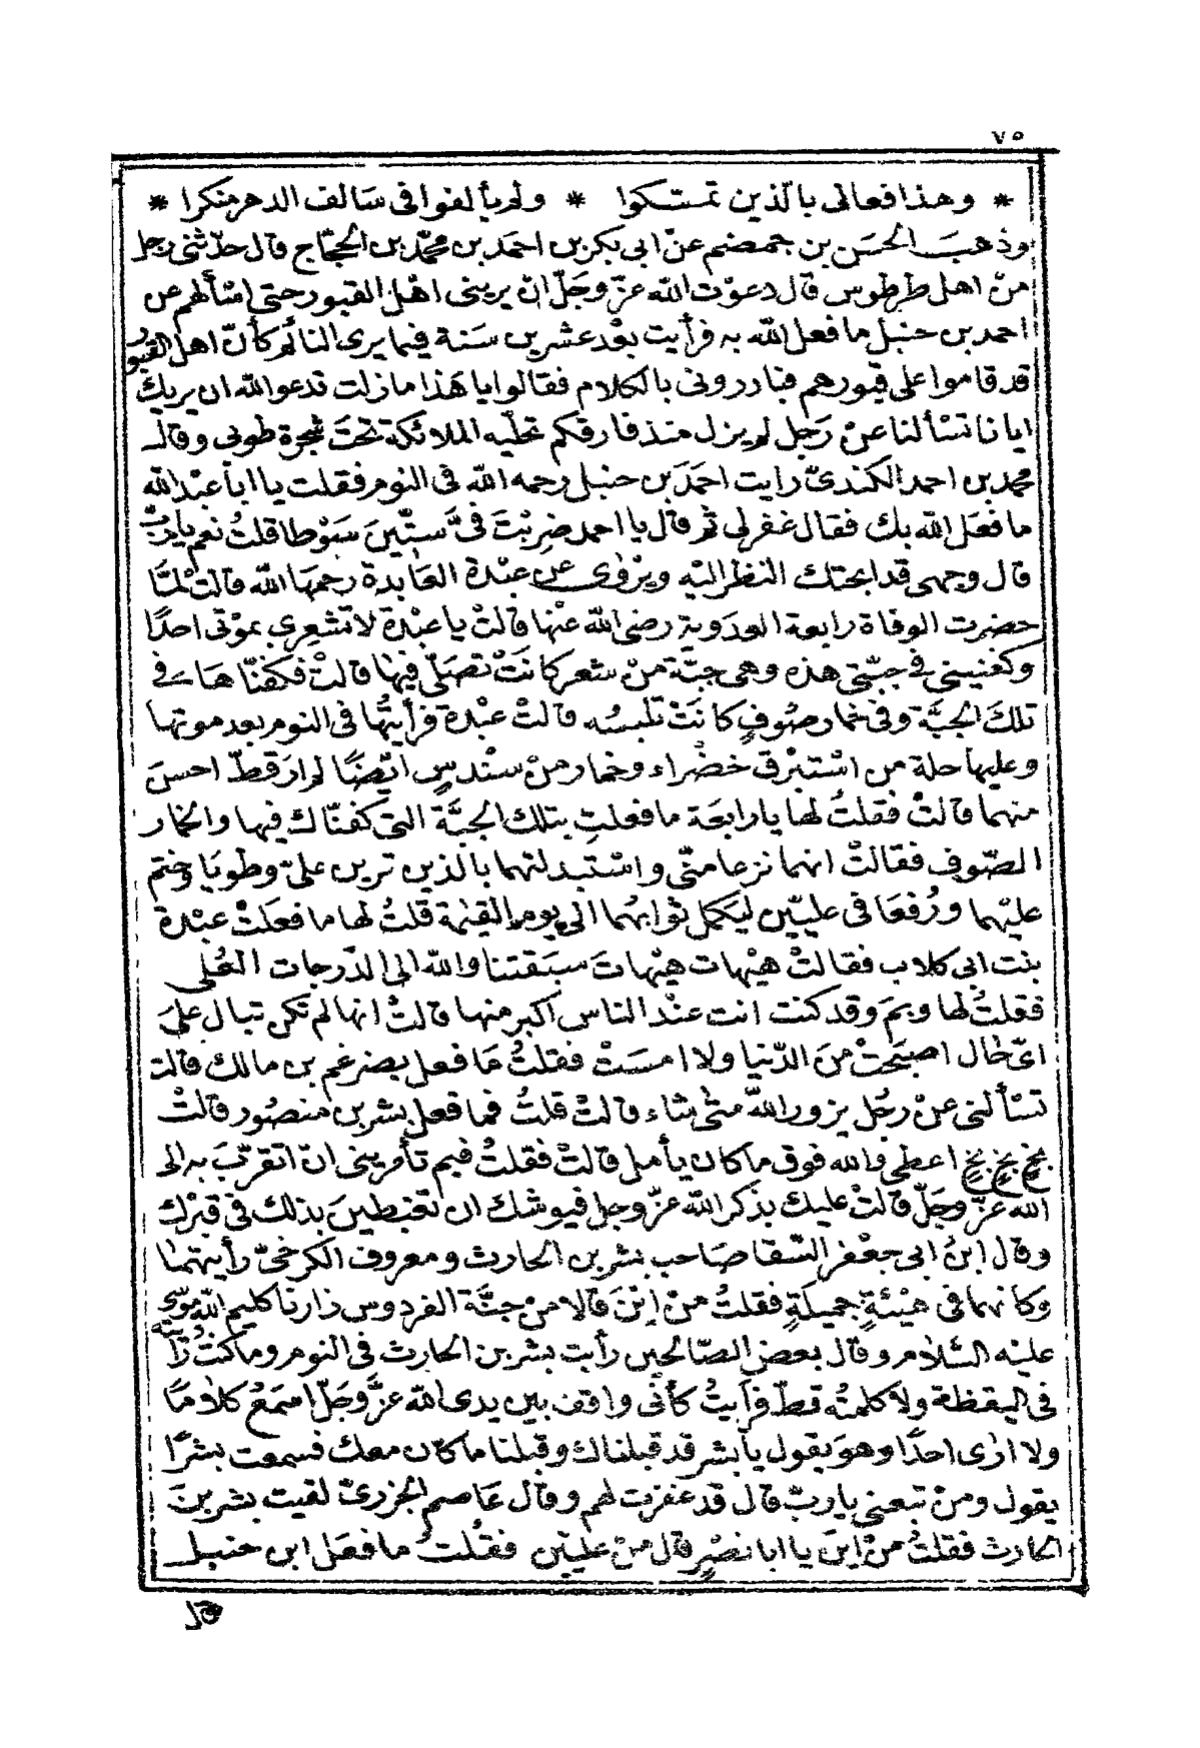 ٧٥
* وهذا فعالى بالّذين تمسّكوا * ولم يألفوا فى سَالف الدهر منكرا *
وذهبَ الحسَن بن جهضم عنْ ابى بكر بن احمَد بن محمّد بن الحجّاج قال حدّثنى رجل
منْ اهل طرطوس قال دعوْت اللّه عزّ وجَلّ انْ يرينى اهْل القبور حتى اسْألهم عن
احمد بن حنبل ما فعل اللّه به فرأيت بعْد عشرين سَنة فيما يرى النائم كأنّ اهل القبور
قد قاموا على قبورهم فبادرونى بالكلام فقالوا يا هَذا ما زلت تدعو اللّه ان يريك
ايانا تسْألنا عنْ رَجل لم يزل منذ فارقكم تحلّيه الملائكة تحتَ شجرة طوبى وقال
محمد بن احمد الكندىّ رايت احمَدَ بن حنبل رحمه اللّه فى النوم فقلت يا ابا عبْد اللّه
ما فعَل اللّه بك فقال غفر لى ثم قال يا احمد ضربْتَ فىَّ ستّينَ سَوْطا قلتُ نعم يا ربّ
قال وجهى قد ابحتك النظر اليْه ويرْوٰى عن عبْدة العَابدة رحمهَا اللّه قالتْ لمَّا
حضرت الوفاة رابعة العدَوية رضى اللّه عنْها قالتْ يا عبْدة لا تشعرى بموْتى احدًا
وكفنينى فى جبّتى هذه وهى جبَّة منْ شعر كانَتْ تصَلّى فيهٰا قالتْ فكفنّاهَا فى
تلكَ الجبَّة وفى خمار صُوفٍ كانَتْ تلبسُه قالتْ عبْدة فرأيتُها فى النوم بعد موتها
وعليها حلة من اسْتبرْق خضْراء وخمار منْ سنْدسٍ ايْضًا لم ار قطّ احسنَ
منهما قالتْ فقلتُ لها يا رابعَة ما فعلتِ بتلك الجبَّة التى كفنّاك فيها والخمار
الصّوف فقالتْ انهما نزعا منّى واسْتبدلتهما بالذين ترين علىّ وطويَا وختم
عليْهما ورُفعَا فى عليّين ليَكمل ثوابهُما الى يوم القيٰمة قلتُ لها ما فعلتْ عبْدة
بنت ابى كلاب فقالتْ هيْهات هيْهاتَ سبَقتنا واللّه الى الدّرجات العُلى
فقلتُ لها وبمَ وقد كنت انت عنْد الناس اكبر منها قالتْ انها لم تكن تبال علىَ
اىّ حٰال اصبَحَتْ منَ الدّنيا ولا امسَتْ فقلتُ مَا فعل بضرغم بن مالك قالت
تسْألنى عنْ رجُل يزور اللّه متٰى شاء قالتْ قلتُ فما فعل بشر بن منصُور قالتْ
بخٍ بخٍ بخٍ اعطى واللّه فوق ما كان يأمل قالتْ فقلتُ فبم تأمرينى انْ اتقرّبَ به الى
اللّه عزّ وجَلّ قالتْ عليك بذكر اللّه عزّ وجل فيوشك ان تغتبطينَ بذلك فى قبْرك
وقال ابنُ ابى جعْفر السّقا صَاحب بشر بن الحارث ومعروف الكرخىّ رأيتهمٰا
وكانهما فى هيْئةٍ جميلةٍ فقلتُ منْ ايْنَ قالا منْ جنَّة الفردوس زارنا كليم اللّه موسٰى
عليْه السّلام وقال بعض الصّالحين رأيت بشر بن الحارث فى النوم وما كنتُ رأيته
فى اليقظة ولا كلمتُه قطّ فرأيتُ كأنّى واقف بين يدى اللّه عزَّ وجَلّ اسمَعُ كلامًا
ولا ارٰى احدًا وهوَ يقول يا بشر قد قبلناك وقبلنا ما كان معك فسمعت بشرًا
يقول ومنْ تبعنى يا ربّ قال قد غفرت لهم وقال عَاصم الجزرىّ لقيت بشر بنَ
الحارث فقلتُ منْ ايْنَ يا ابا نصْرٍ قال منْ عليّين فقُلتُ ما فعَل ابن حنبل
قال